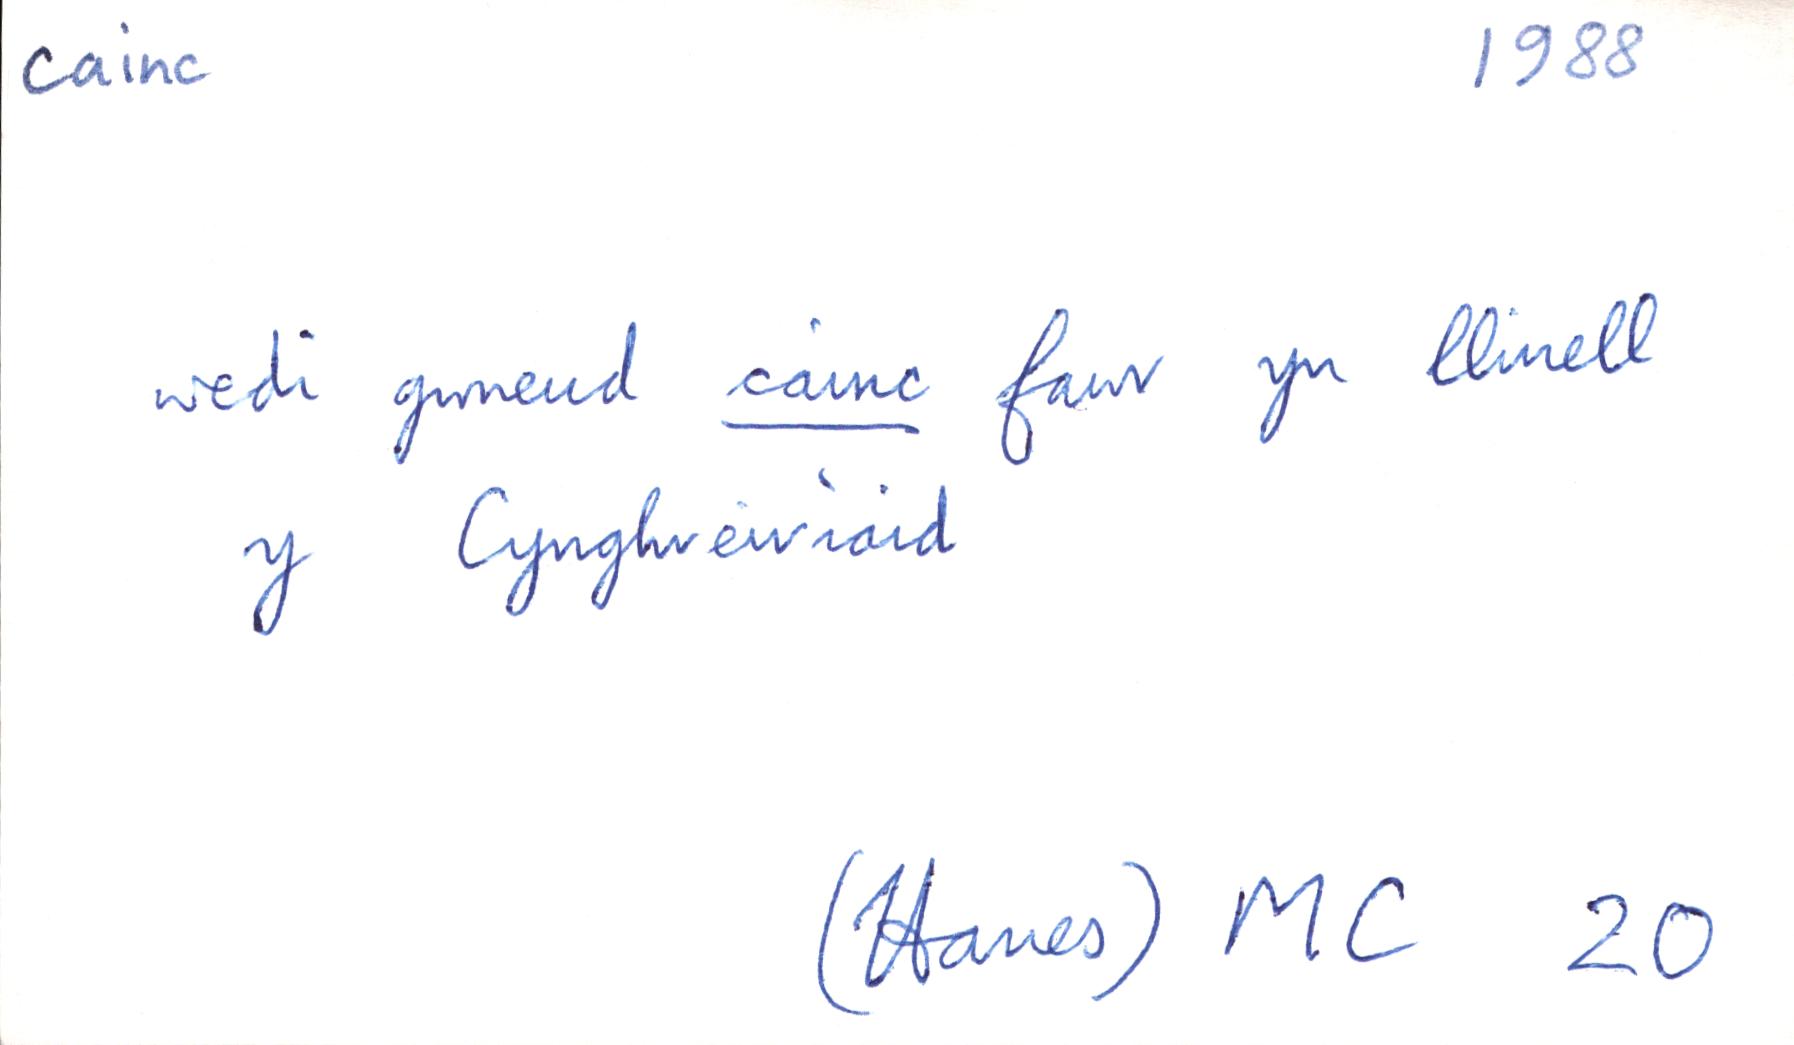 cainc 1988
wedi gwneud cainc fawr yn llinell
y Cynghreiriaid
(Hanes) MC 20